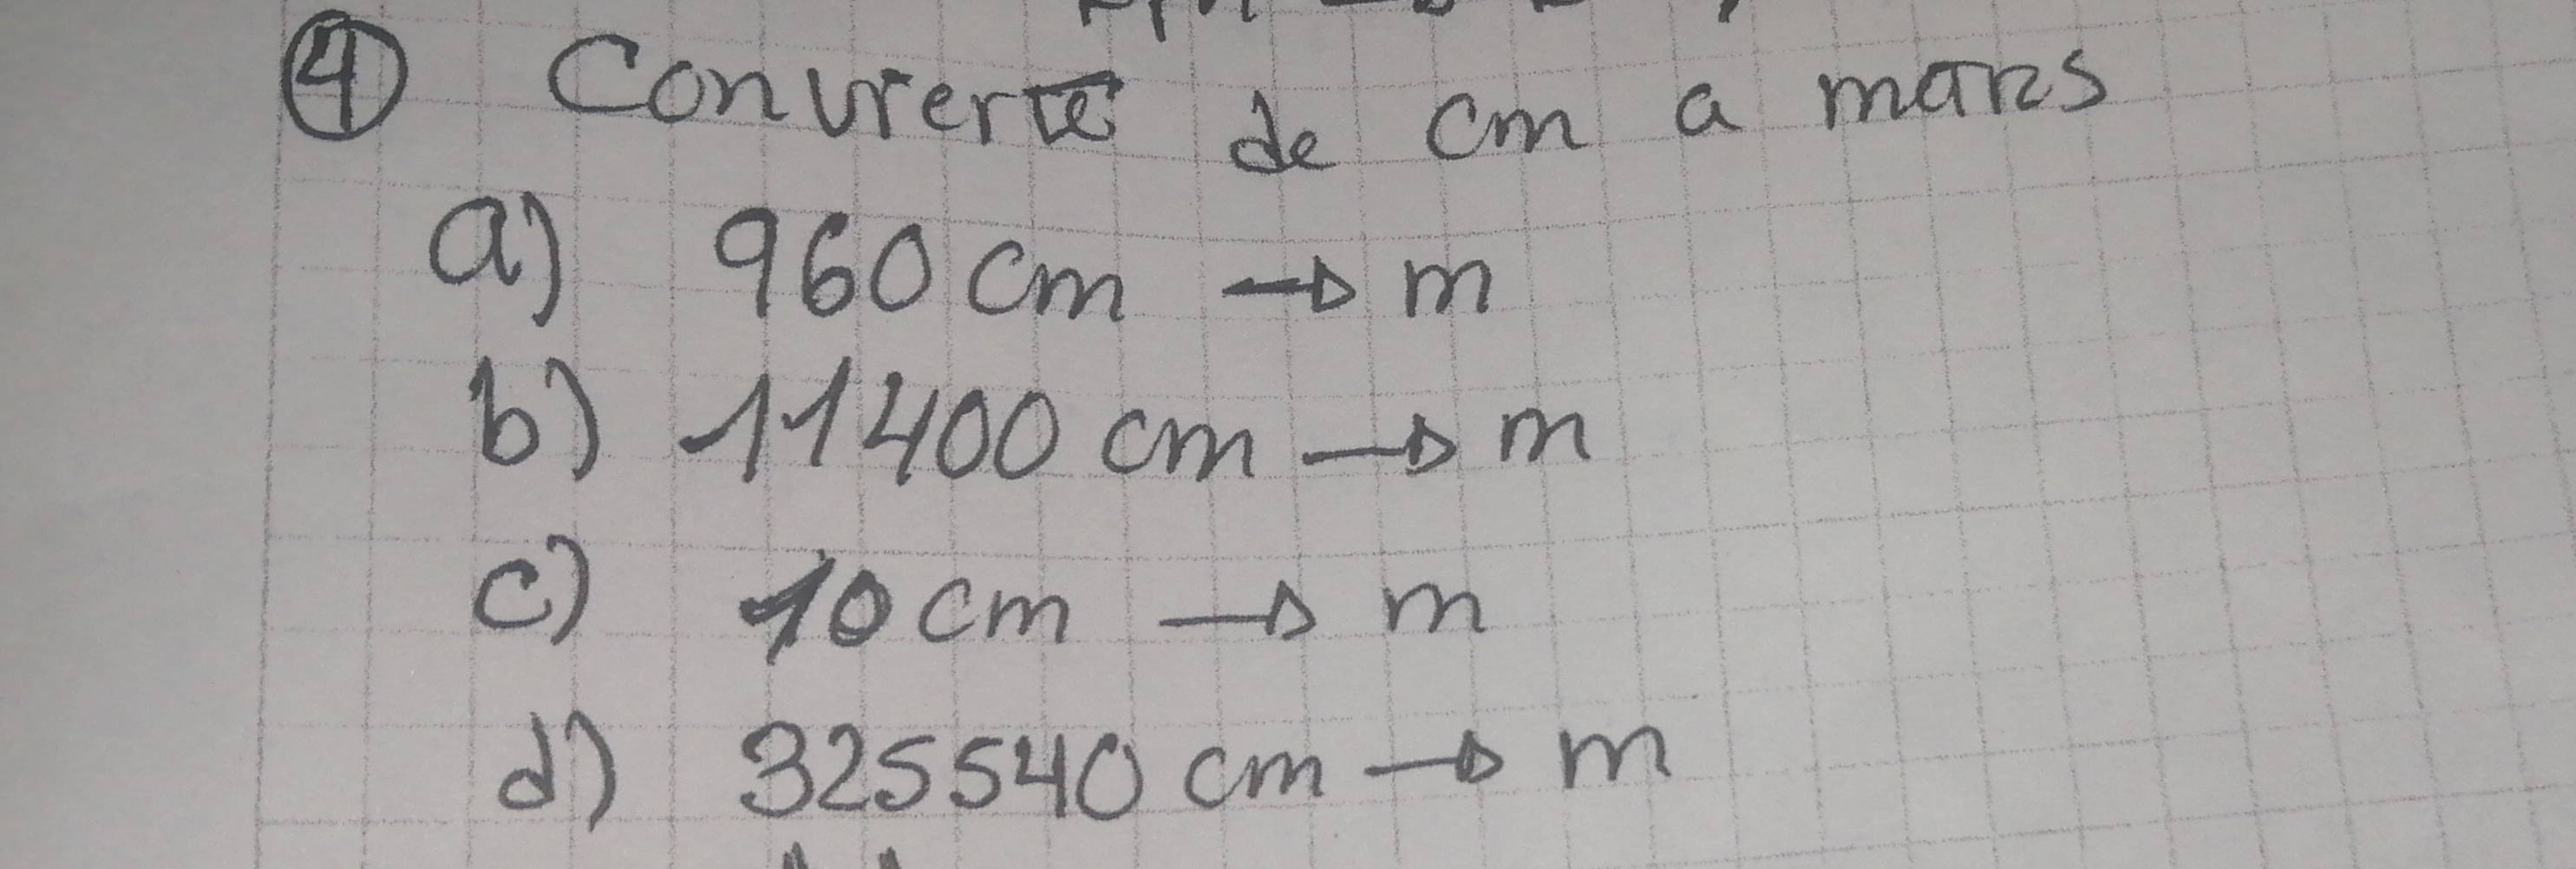 ④ Convierte de cm a metros
a) 960 cm → m
b) 11400 cm → m
c) 10 cm → m
d) 325540 cm → m